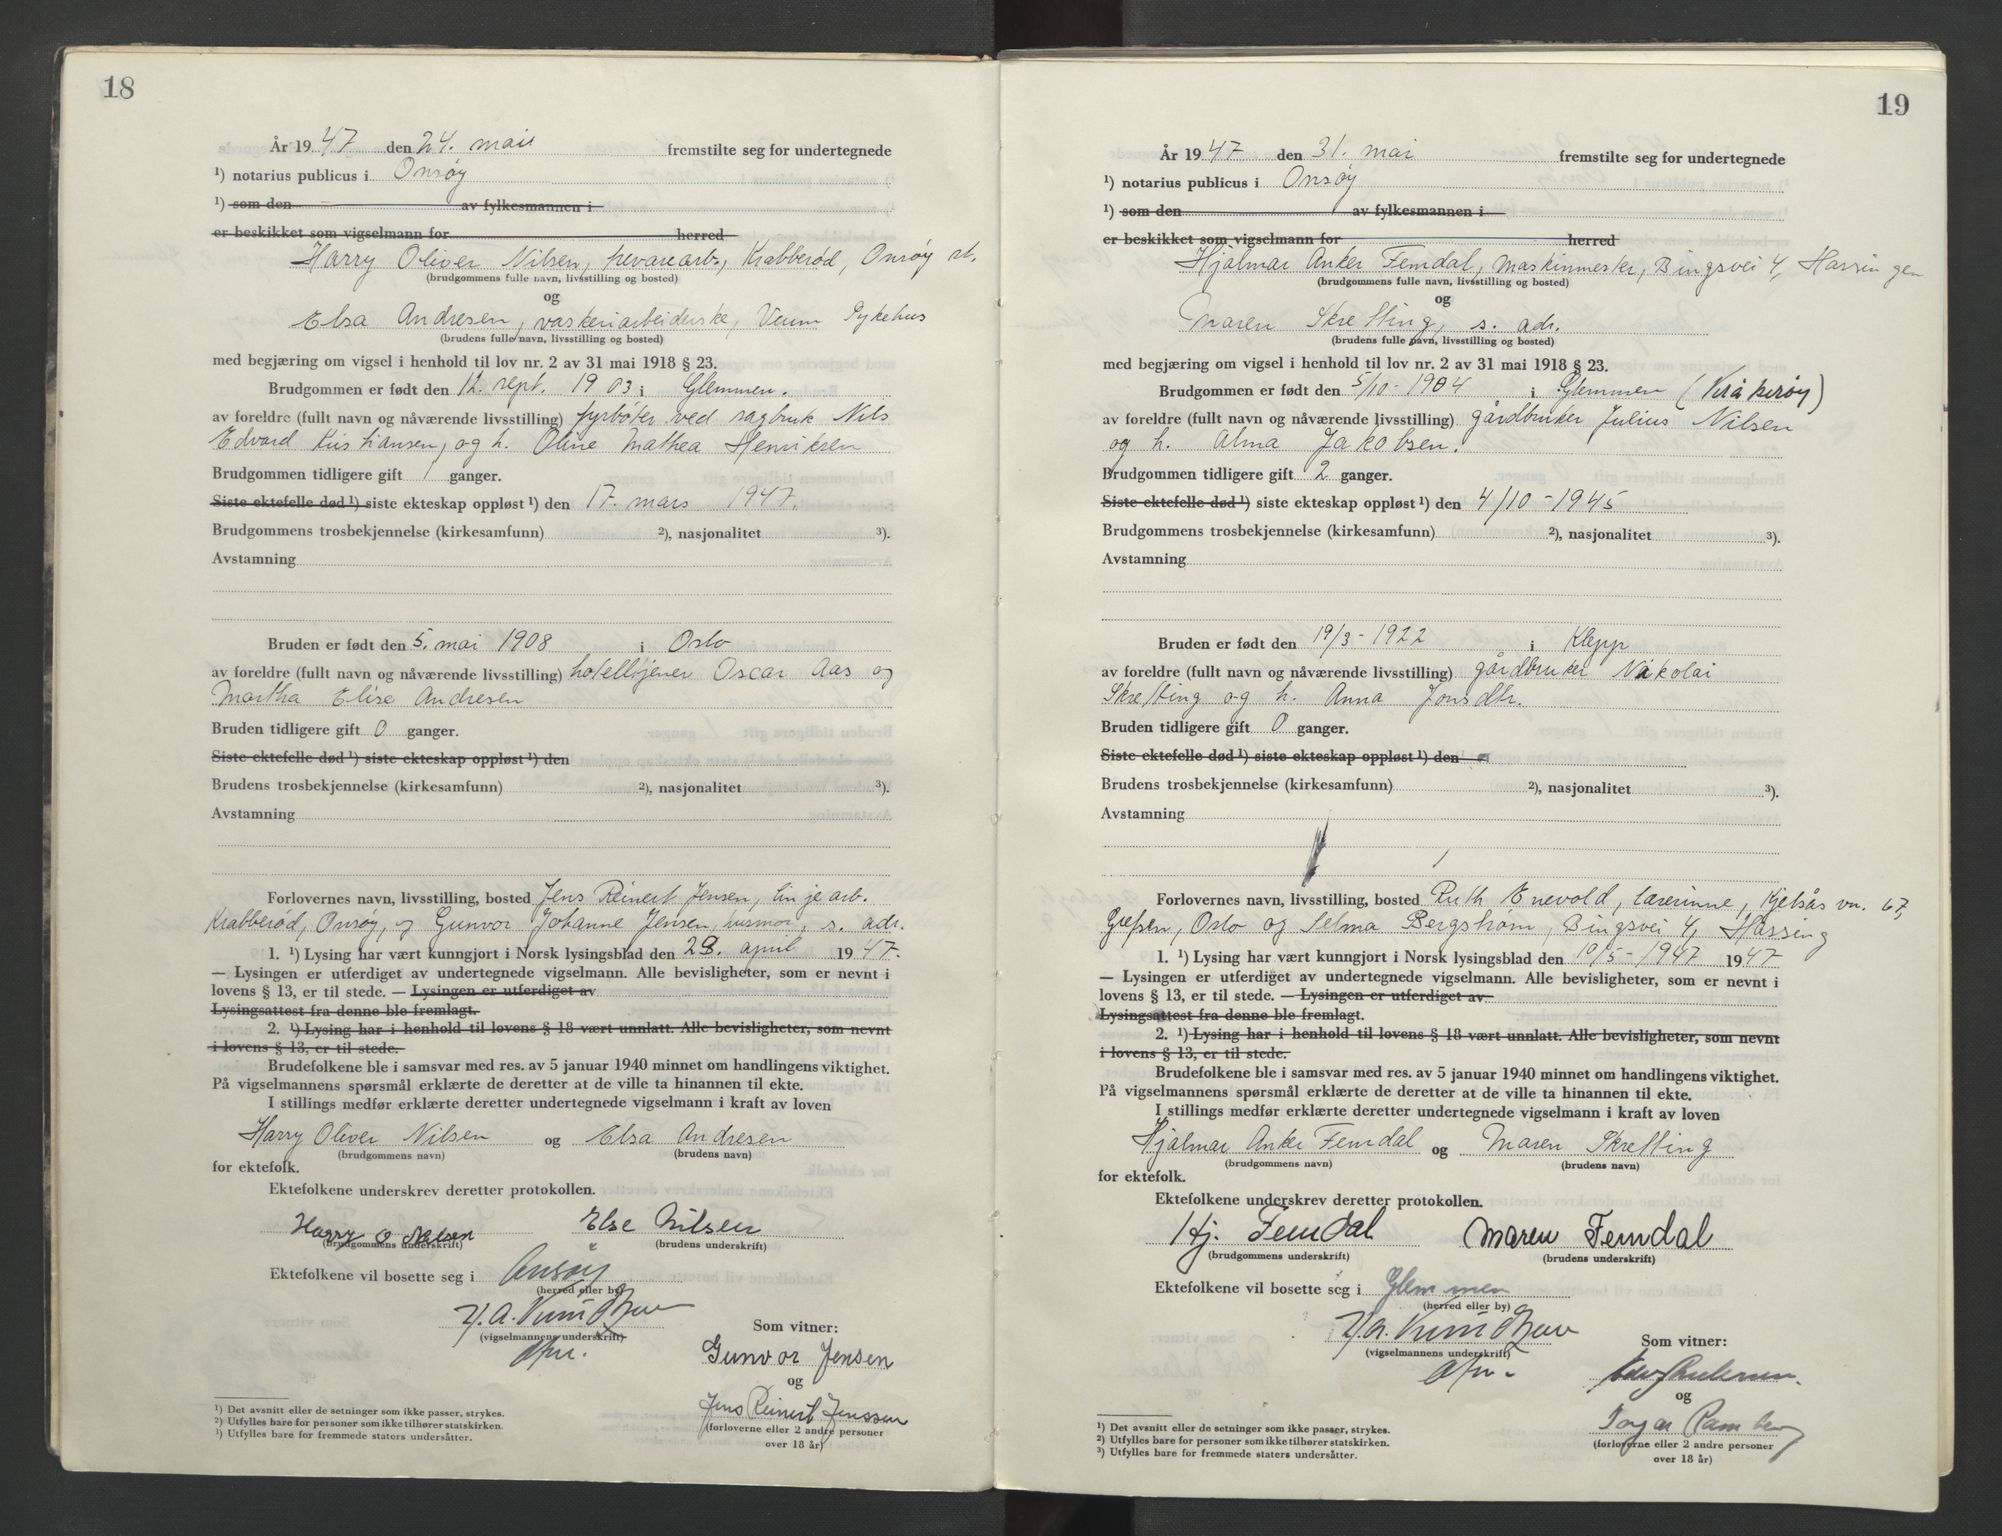 18
År 1947 den 24. mai fremstilte seg for undertegnede
¹) notarius publicus i Onsøy
¹) som den av fylkesmannen i
er beskikket som vigselmann for herred
Harry Oliver Nilsen, Krabberød, Onsøy st.
(brudgommens fulle navn, livsstilling og bosted)
og
Elsa Andresen, vaskeriarbeiderske, Veum Sykehus
(brudens fulle navn, livsstilling og bosted)
med begjæring om vigsel i henhold til lov nr. 2 av 31 mai 1918 § 23.
Brudgommen er født den 12. sept. 1903 i Glemmen.
av foreldre (fullt navn og nåværende livsstilling) fyrbøter ved sagbruk Nils
Edvard Kristiansen, og h. Oline Mathea Henriksen
Brudgommen tidligere gift 1 ganger.
Siste ektefelle død ¹) siste ekteskap oppløst ¹) den 17. mars 1947.
Brudgommens trosbekjennelse (kirkesamfunn) ²), nasjonalitet ³).
Avstamning
Bruden er født den 5. mai 1908 i Oslo
av foreldre (fullt navn og nåværende livsstilling) hotelltjener Oscar Aas og
Martha Elise Andresen
Bruden tidligere gift 0 ganger.
Siste ektefelle død ¹) siste ekteskap oppløst ¹) den
Brudens trosbekjennelse (kirkesamfunn) ²), nasjonalitet ³).
Avstamning
Forlovernes navn, livsstilling, bosted Jens Reinert Jensen, linjearb.
Krabberød, Onsøy, og Gunvor Johanne Jensen, husmor, s. adr.
1. ¹) Lysing har vært kunngjort i Norsk lysingsblad den 28. april 1947.
— Lysingen er utferdiget av undertegnede vigselmann. Alle bevisligheter, som er nevnt i
lovens § 13, er til stede. — Lysingen er utferdiget av
Lysingsattest fra denne ble fremlagt.
2. ¹) Lysing har i henhold til lovens § 18 vært unnlatt. Alle bevisligheter, som nevnt
i lovens § 13, er til stede.
Brudefolkene ble i samsvar med res. av 5 januar 1940 minnet om handlingens viktighet.
På vigselmannens spørsmål erklærte de deretter at de ville ta hinannen til ekte.
I stillings medfør erklærte deretter undertegnede vigselmann i kraft av loven
Harry Oliver Nilsen og Elsa Andresen
(brudgommens navn) (brudens navn)
for ektefolk.
Ektefolkene underskrev deretter protokollen.
Harry O Nilsen Else Nilsen
(brudgommens underskrift) (brudens underskrift)
Ektefolkene vil bosette seg i Onsøy
(herred eller by)
(vigselmannens underskrift)
Som vitner:
Gunvor Jensen
og
Jens Reinert Jenssen
(forloverne eller 2 andre personer
over 18 år)
¹) Det avsnitt eller de setninger som ikke passer, strykes.
²) Utfylles bare for personer som ikke tilhører statskirken.
³) Utfylles bare for fremmede staters undersåtter.
19
År 1947 den 31. mai fremstilte seg for undertegnede
¹) notarius publicus i Onsøy
¹) som den av fylkesmannen i
er beskikket som vigselmann for herred
Hjalmar Anker Femdal, maskinmester, Bingsvei 4, Hassingen
(brudgommens fulle navn, livsstilling og bosted)
og
Maren Skretting, s. adr.
(brudens fulle navn, livsstilling og bosted)
med begjæring om vigsel i henhold til lov nr. 2 av 31 mai 1918 § 23.
Brudgommen er født den 5/10-1904 i Glemmen (Kråkerøy)
av foreldre (fullt navn og nåværende livsstilling) gårdbruker Julius Nilsen
og h. Alma Jakobsen.
Brudgommen tidligere gift 2 ganger.
Siste ektefelle død ¹) siste ekteskap oppløst ¹) den 4/10-1945
Brudgommens trosbekjennelse (kirkesamfunn) ²), nasjonalitet ³).
Avstamning
Bruden er født den 19/3-1922 i Klepp
av foreldre (fullt navn og nåværende livsstilling) gårdbruker Nikolai
Skretting og h. Anna Jonsdtr.
Bruden tidligere gift 0 ganger.
Siste ektefelle død ¹) siste ekteskap oppløst ¹) den
Brudens trosbekjennelse (kirkesamfunn) ²), nasjonalitet ³).
Avstamning
Forlovernes navn, livsstilling, bosted Ruth Enevold, lærerinne, Kjelsås vn. 67,
Grefsen, Oslo og Selma Bergstrøm, Bingsvei 4, Hassing
1. ¹) Lysing har vært kunngjort i Norsk lysingsblad den 10/5-1947 1947
— Lysingen er utferdiget av undertegnede vigselmann. Alle bevisligheter, som er nevnt i
lovens § 13, er til stede. — Lysingen er utferdiget av
Lysingsattest fra denne ble fremlagt.
2. ¹) Lysing har i henhold til lovens § 18 vært unnlatt. Alle bevisligheter, som nevnt
i lovens § 13, er til stede.
Brudefolkene ble i samsvar med res. av 5 januar 1940 minnet om handlingens viktighet.
På vigselmannens spørsmål erklærte de deretter at de ville ta hinannen til ekte.
I stillings medfør erklærte deretter undertegnede vigselmann i kraft av loven
Hjalmar Anker Femdal og Maren Skretting
(brudgommens navn) (brudens navn)
for ektefolk.
Ektefolkene underskrev deretter protokollen.
Hj. Femdal Maren Femdal
(brudgommens underskrift) (brudens underskrift)
Ektefolkene vil bosette seg i Glemmen
(herred eller by)
(vigselmannens underskrift)
Som vitner:
og
Ramberg
(forloverne eller 2 andre personer
over 18 år)
¹) Det avsnitt eller de setninger som ikke passer, strykes.
²) Utfylles bare for personer som ikke tilhører statskirken.
³) Utfylles bare for fremmede staters undersåtter.